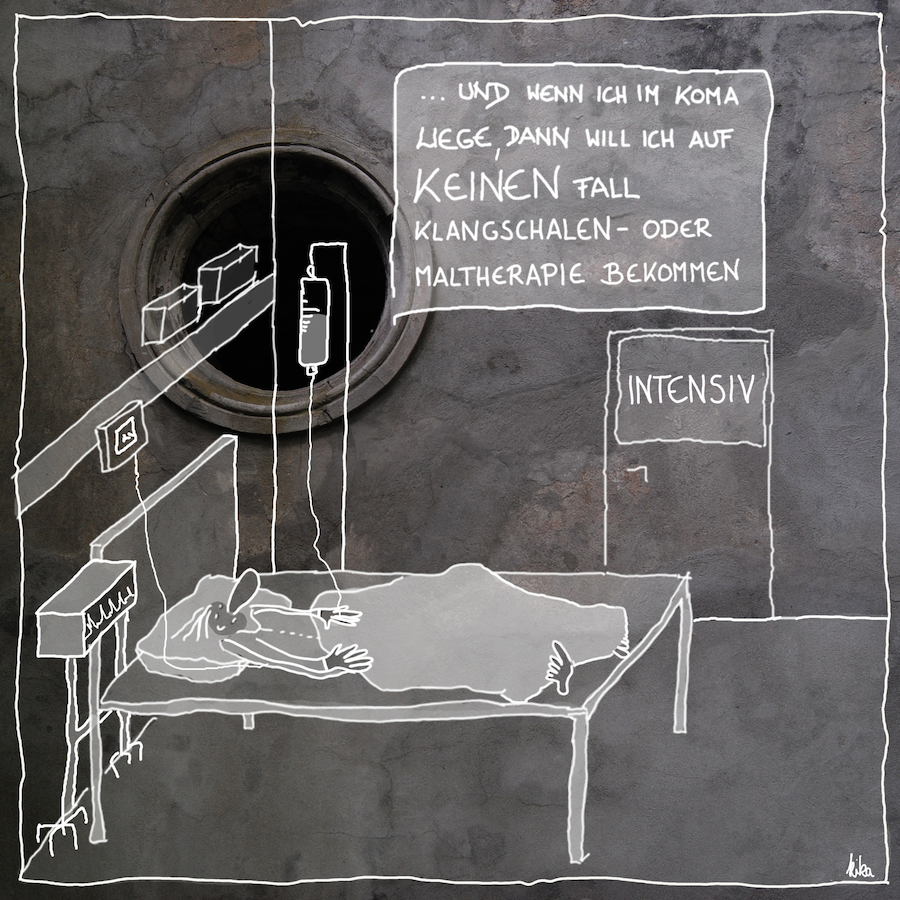 ... UND WENN ICH IM KOMA
LIEGE, DANN WILL ICH AUF
KEINEN FALL
KLANGSCHALEN- ODER
MALTHERAPIE BEKOMMEN
INTENSIV
kika